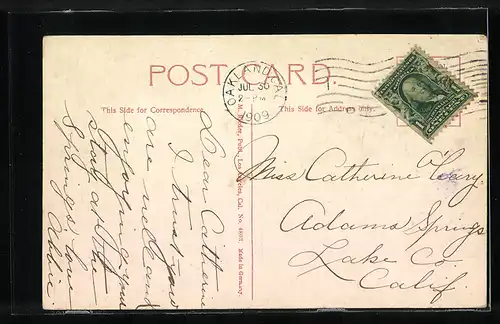 POST CARD
This Side for Correspondence.
This Side for Address only.
OAKLAND, CAL.
JUL 30
2-PM
1909
Dear Catherine
I trust you
are well and
enjoying your
stay at the
Springs. Love
Addie.
Miss Catherine
Adams Springs
Lake Co.
Calif.
Los Angeles, Cal. No. 4807. Made in Germany.